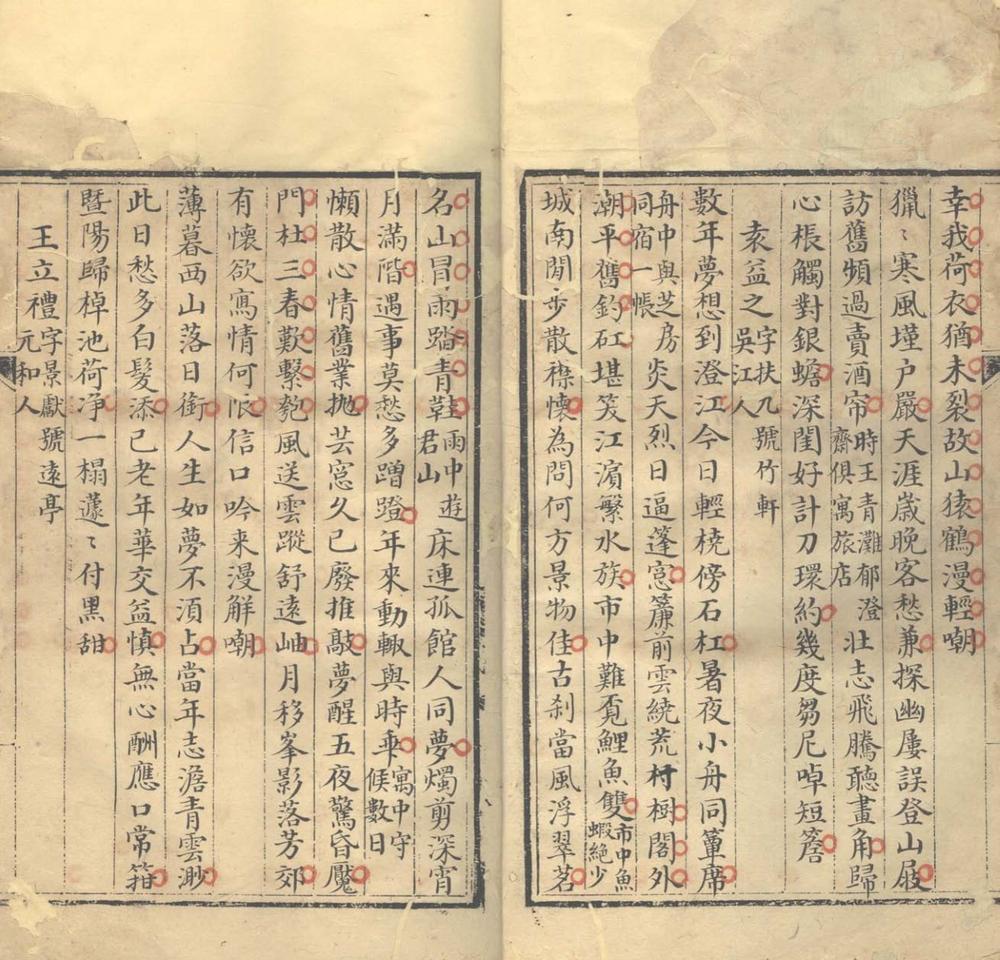 幸我荷衣猶未裂故山猿鶴漫輕嘲
獵〻寒風墐户嚴天涯歲晚客愁兼探幽屢誤登山屐
訪舊頻過賣酒帘時王青灘郁澄齋俱寓旅店壯志飛騰聽畫角歸
心棖觸對銀蟾深閨好計刀環約幾度芻尼啅短簷
袁益之字扶九號竹軒吳江人
數年夢想到澄江今日輕橈傍石杠暑夜小舟同簟席
舟中與芝房同宿一帳炎天烈日逼蓬窓簾前雲繞荒村樹閣外
潮平舊釣矼堪笑江濵繁水族市中難覔鯉魚雙市中魚蝦絶少
城南閒步散襟懷為問何方景物佳古刹當風浮翠茗
名山冒雨踏青鞋雨中遊君山床連孤館人同夢燭剪深宵
月滿階遇事莫愁多蹭蹬年來動輙與時乖寓中守候數日
懶散心情舊業抛芸窓久已廢推敲夢醒五夜驚昏魘
門杜三春歎繫匏風送雲蹤舒遠岫月移峯影落芳郊
有懷欲寫情何限信口吟来漫解嘲
薄暮西山落日銜人生如夢不湏占當年志澹青雲渺
此日愁多白髮添已老年華交益慎無心酬應口常箝
暨陽歸棹池荷净一榻蘧〻付黒甜
王立禮字景獻號遠亭元和人